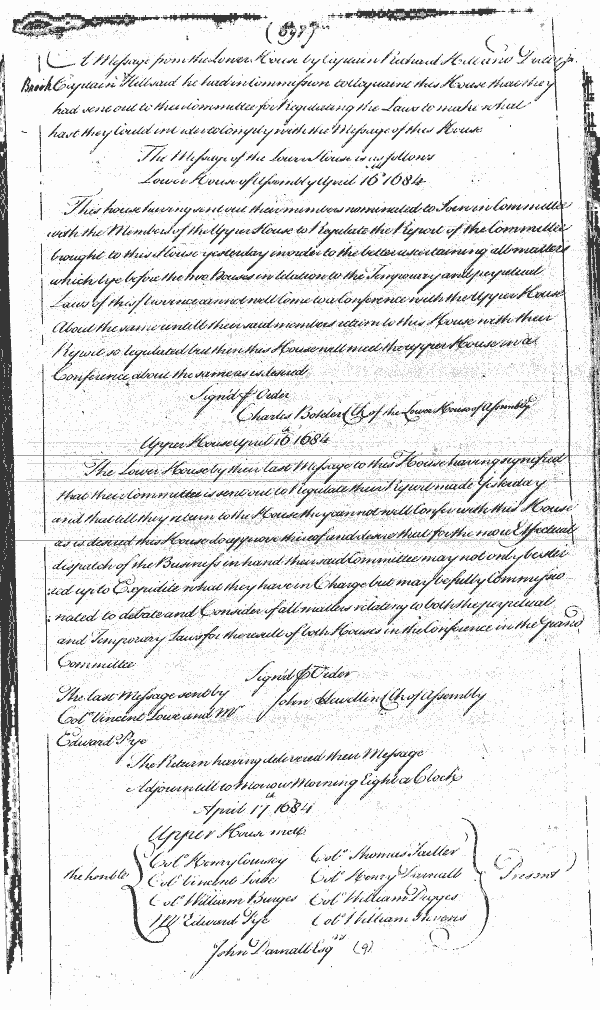 (597)
A Message from the Lower House by Captain Richard Hill and
Brooke Captain Hill said he had in Commission to acquaint this House that they
had sent out to their Committee for Regulating the Laws to make what
hast they Could in order to Comply with the Message of this House
The Message of the Lower House is as follows
Lower House of Assembly April 16th 1684
This house having sent out their members nominated to Joine in Committee
with the Members of the Upper House to Regulate the Report of the Committee
brought to this House yesterday in order to the better ascertaining all matters
which lye before the two Houses in relation to the Temporary and perpetual
Laws of this province cannot well Come to a Conference with the Upper House
About the same untill their said members return to this House with their
Report so regulated but then this House will meet the upper House in a
Conference about the same as is desired
Signd p Order
Charles Boteler Clk of the Lower House of Assembly
Upper House April 16th 1684
The Lower House by their last Message to this House having signified
that their Committee is sent out to Regulate their Report made Yesterday
and that till they return to the House they cannot well Confer with this House
as is desired this House do approve thereof and desire that for the more Effectual
dispatch of the Business in hand their said Committee may not only be
ed up to Expidite what they have in Charge but may be fully Commissio
nated to debate and Consider of all matters relateing to both the perpetual
and Temporary Laws for the result of both Houses in the Conference in the Grand
Committee
Signd p Order
The last Message sent by John Llewellin Clk of Assembly
Colo Vincent Lowe and Mr
Edward Pye
The Return having delivered their Message
Adjourn till to Morrow Morning Eight a Clock
April 17th 1684
Upper House mett
the honble Colo Henry Coursey Colo Thomas Tailler Present
Colo Vincent Lowe Colo Henry Darnall
Colo William Burges Colo William Digges
Mr Edward Pye Colo William Stevens
John Darnall Esqrs (9)